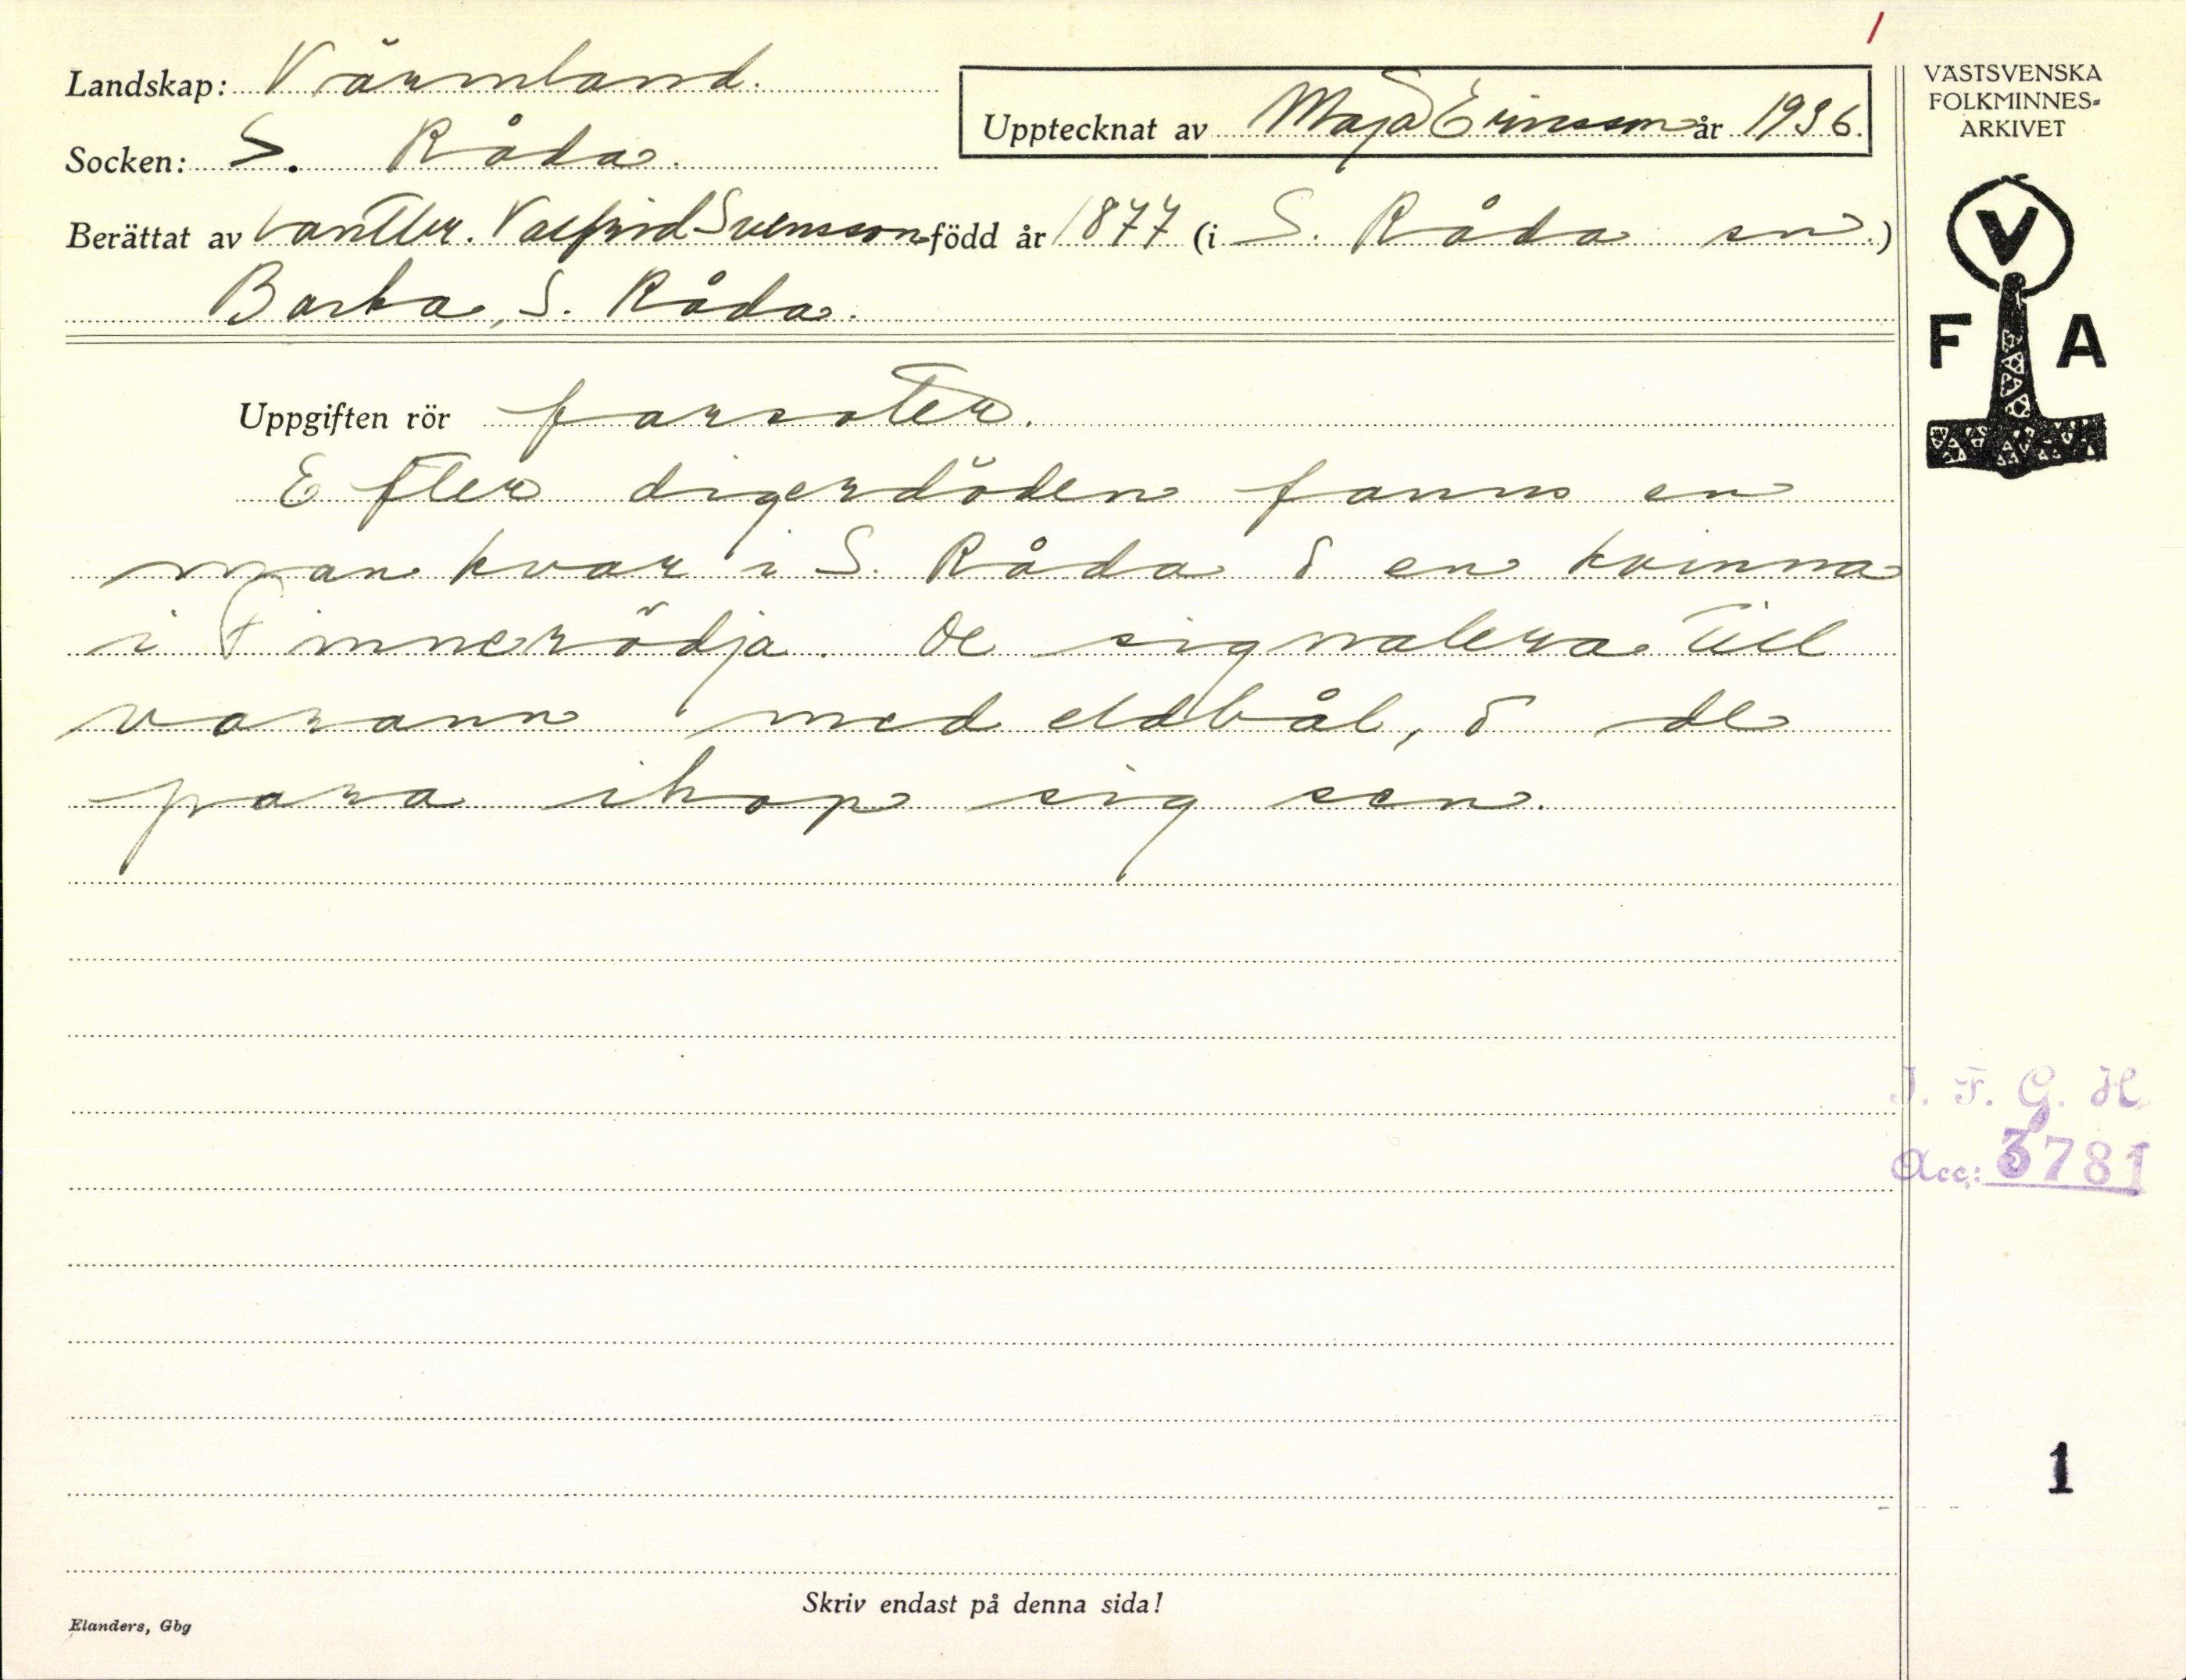 Landskap: Värmland.
Socken: S. Råda.
Upptecknat av Maja Ericsson år 1936.
Berättat av lantbr. Valfrid Svensson född år 1877 (i S. Råda sn.)
Backa, S. Råda.
VÄSTSVENSKA
FOLKMINNES-
ARKIVET
V
F A
Uppgiften rör farsoter.
Efter digerdöden fanns en
man kvar i S. Råda o en kvinna
i Finnerödja. De signalera till
varann med eldbål, o de
para ihop sig sen.
I. F. G. H
Acc: 3781
1
Skriv endast på denna sida!
Elanders, Gbg